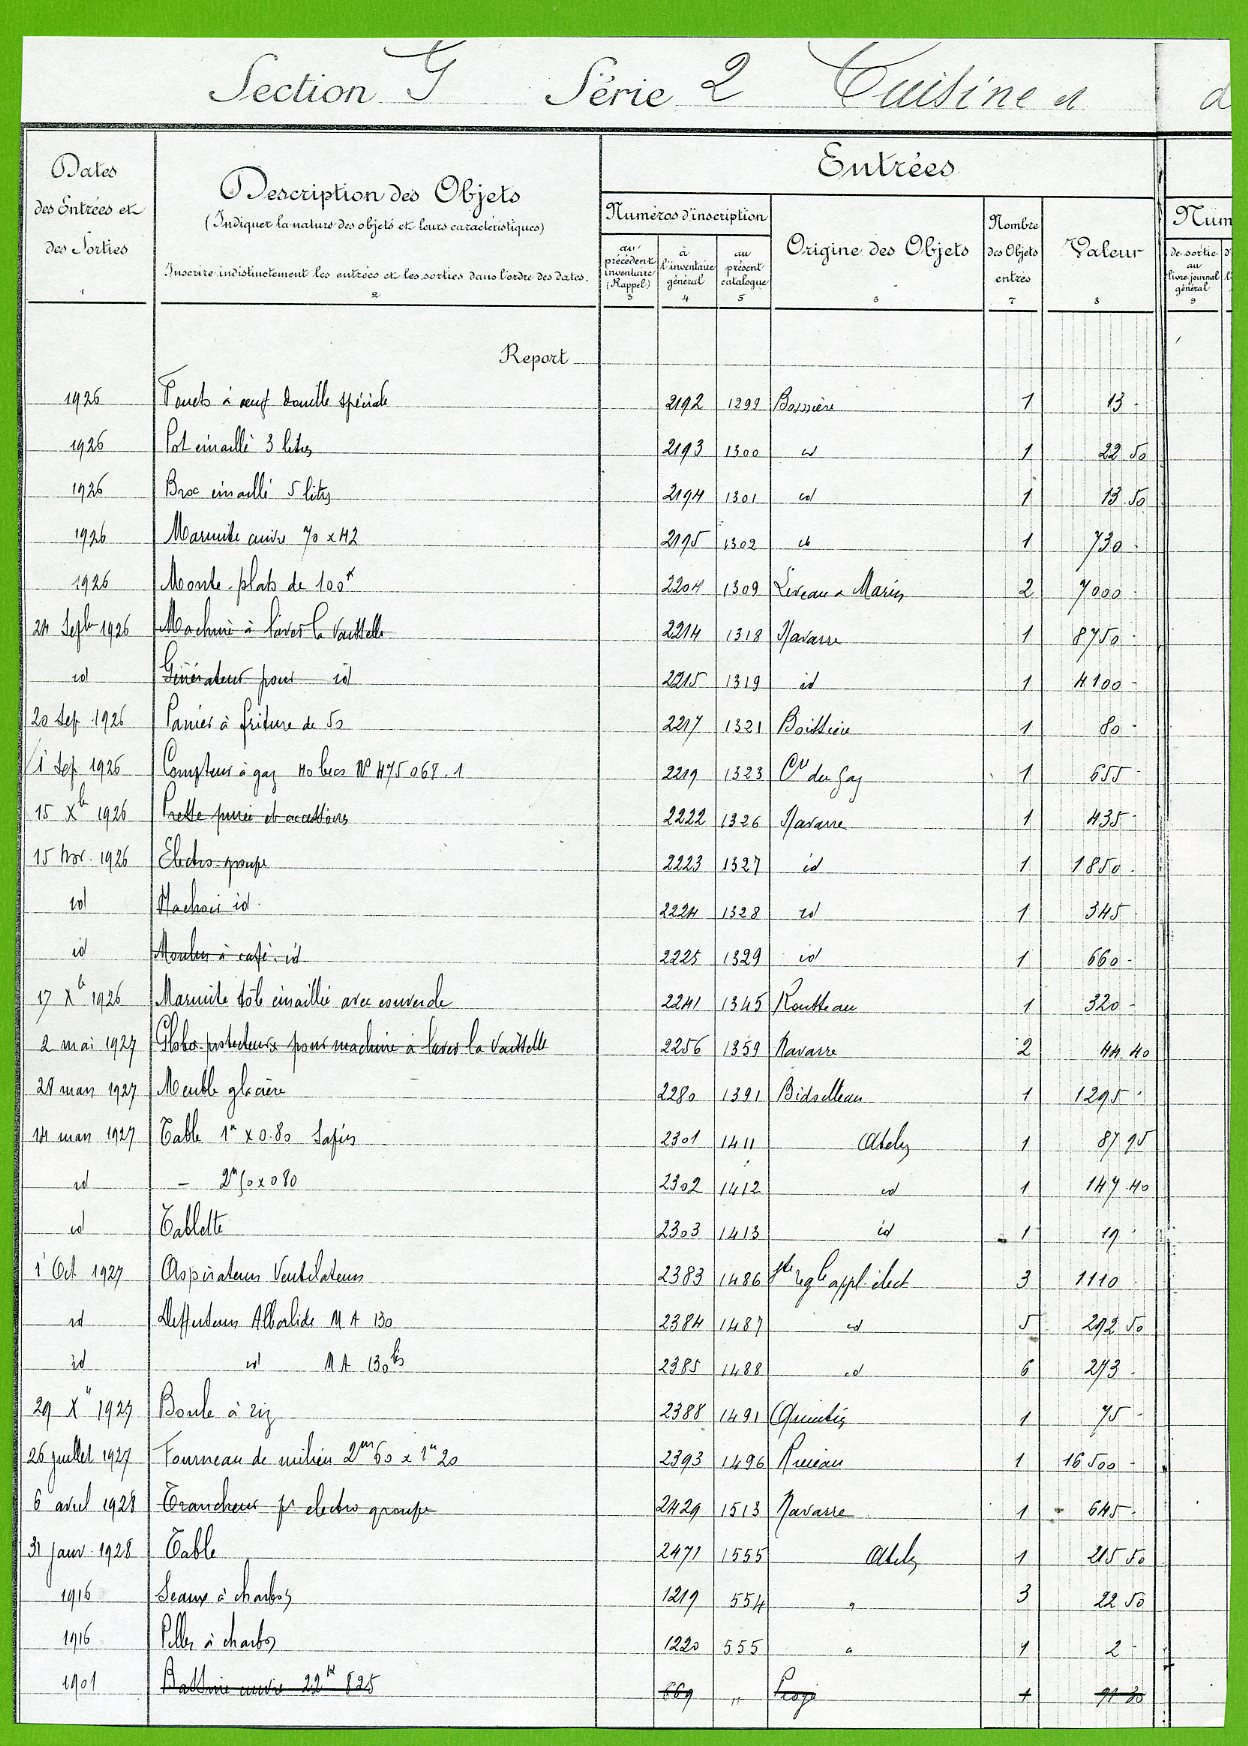 Section G Série 2 Cuisine et d
Dates
des Entrées et
des Sorties
1
Description des Objets
(Indiquer la nature des objets et leurs caractéristiques)
Inscrire indistinctement les entrées et les sorties dans l'ordre des dates.
2
Entrées
Numéros d'inscription
au précédent inventaire (Rappel)
3
à l'inventaire général
4
au présent catalogue
5
Origine des Objets
6
Nombre des Objets entrés
7
Valeur
8
Num
de sortie au livre journal général
9
Report
1926 Fouets à œuf douille spéciale 2192 1299 Boissière 1 13 -
1926 Pot émaillé 3 litres 2193 1300 id 1 22 50
1926 Broc émaillé 5 litres 2194 1301 id 1 13 50
1926 Marmite cuivre 70 x 42 2195 1302 id 1 730 -
1926 Monte-plats de 100k 2204 1309 Leveau & Marin 2 7000 -
24 Septe 1926 Machine à laver la vaisselle 2214 1318 Navarre 1 8750 -
id Générateur pour id 2215 1319 id 1 4100 -
20 Sep 1926 Panier à friture de 50 2217 1321 Boissière 1 80 -
1 Sep 1926 Compteur à gaz 40 becs No 475068.1 2219 1323 Cie du Gaz 1 655 -
15 Xbre 1926 Presse purée et accessoires 2222 1326 Navarre 1 435 -
15 Nov. 1926 Electro-groupe 2223 1327 id 1 1850 -
id Hachoir id. 2224 1328 id 1 345 -
id Moulin à café id 2225 1329 id 1 660 -
17 Xb 1926 Marmite tôle émaillée avec couvercle 2241 1345 Rousseau 1 320 -
2 mai 1927 Globes protecteurs pour machine à laver la vaisselle 2256 1359 Navarre 2 44.40
28 mars 1927 Meuble glacière 2280 1391 1 1295 -
14 mars 1927 Table 1m x 0.80 Sapin 2301 1411 Atelier 1 87 95
id - 2m50 x 080 2302 1412 id 1 147.40
id Tablette 2303 1413 id 1 19 -
1 Oct 1927 Aspirateurs Ventilateurs 2383 1486 appl. élect 3 1110
id Diffuseurs MA 130 2384 1487 id 5 292 50
id id MA 130 bis 2385 1488 id 6 273 -
29 X 1927 Boule à riz 2388 1491 Quentin 1 75 -
26 juillet 1927 Fourneau de milieu 2m60 x 1m20 2393 1496 1 16500 -
6 avril 1928 Trancheur pr electro groupe 2429 1513 Navarre 1 645 -
31 janv. 1928 Table 2471 1555 Atelier 1 215 50
1916 Seaux à charbon 1219 554 " 3 22 50
1916 Pelle à charbon 1220 555 " 1 2 -
1901 cuivre 22k 825 869 " 1 91 30